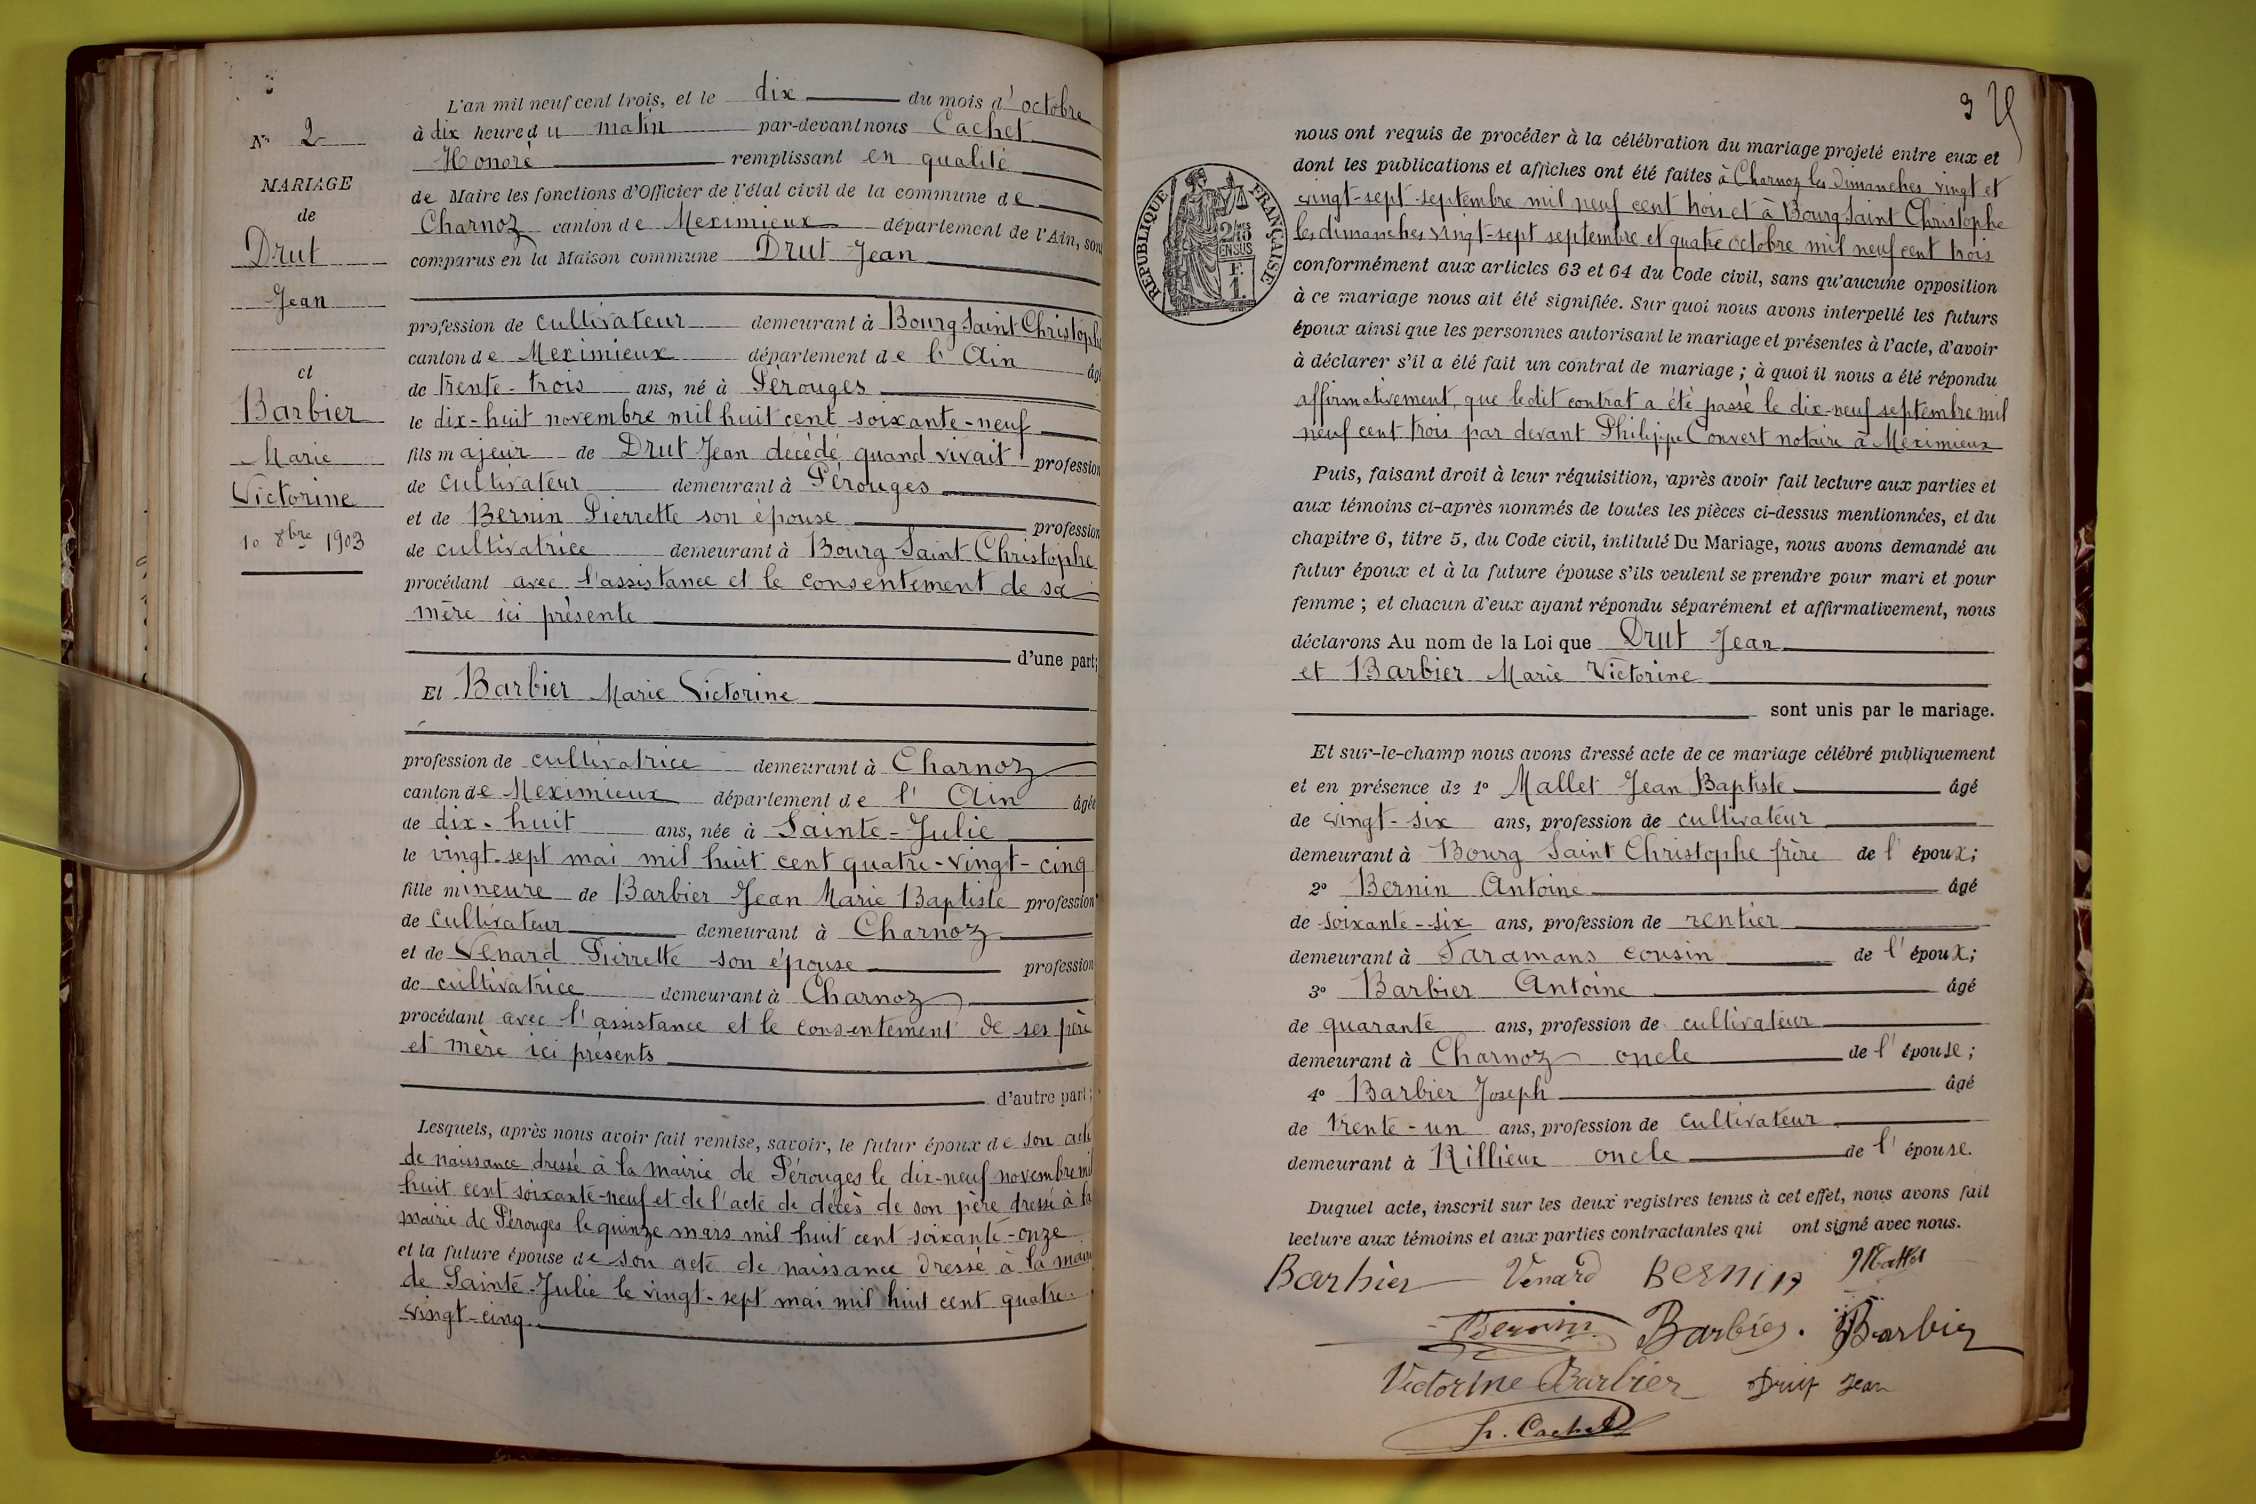 N° 2
MARIAGE
de
Drut
Jean
et
Barbier
Marie
Victorine
10 8bre 1903
L'an mil neuf cent trois, et le dix du mois d'octobre
à dix heure du matin par-devant nous Cachet
Honoré remplissant en qualité
de Maire les fonctions d'Officier de l'état civil de la commune de
Charnoz canton de Meximieux département de l'Ain, sont
comparus en la Maison commune Drut Jean
profession de cultivateur demeurant à Bourg Saint Christophe
canton de Meximieux département de l'Ain âgé
de trente-trois ans, né à Pérouges
le dix-huit novembre mil huit cent soixante-neuf
fils majeur de Drut Jean décédé quand vivait profession
de cultivateur demeurant à Pérouges
et de Bernin Pierrette son épouse profession
de cultivatrice demeurant à Bourg Saint Christophe
procédant avec l'assistance et le consentement de sa
mère ici présente
d'une part;
Et Barbier Marie Victorine
profession de cultivatrice demeurant à Charnoz
canton de Meximieux département de l'Ain âgée
de dix-huit ans, née à Sainte-Julie
le vingt-sept mai mil huit cent quatre-vingt-cinq
fille mineure de Barbier Jean Marie Baptiste profession
de cultivateur demeurant à Charnoz
et de Venard Pierrette son épouse profession
de cultivatrice demeurant à Charnoz
procédant avec l'assistance et le consentement de ses père
et mère ici présents
d'autre part;
Lesquels, après nous avoir fait remise, savoir, le futur époux de son acte
de naissance dressé à la mairie de Pérouges le dix-neuf novembre mil
huit cent soixante-neuf et de l'acte de décès de son père dressé à la
mairie de Pérouges le quinze mars mil huit cent soixante-onze
et la future épouse de son acte de naissance dressé à la mairie
de Sainte-Julie le vingt-sept mai mil huit cent quatre-
vingt-cinq
3
RÉPUBLIQUE FRANÇAISE
2/10es
EN SUS
1F
nous ont requis de procéder à la célébration du mariage projeté entre eux et
dont les publications et affiches ont été faites à Charnoz les dimanches vingt et
vingt-sept septembre mil neuf cent trois et à Bourg Saint Christophe
les dimanches vingt-sept septembre et quatre octobre mil neuf cent trois
conformément aux articles 63 et 64 du Code civil, sans qu'aucune opposition
à ce mariage nous ait été signifiée. Sur quoi nous avons interpellé les futurs
époux ainsi que les personnes autorisant le mariage et présentes à l'acte, d'avoir
à déclarer s'il a été fait un contrat de mariage; à quoi il nous a été répondu
affirmativement, que ledit contrat a été passé le dix-neuf septembre mil
neuf cent trois par devant Philippe Convert notaire à Meximieux
Puis, faisant droit à leur réquisition, après avoir fait lecture aux parties et
aux témoins ci-après nommés de toutes les pièces ci-dessus mentionnées, et du
chapitre 6, titre 5, du Code civil, intitulé Du Mariage, nous avons demandé au
futur époux et à la future épouse s'ils veulent se prendre pour mari et pour
femme; et chacun d'eux ayant répondu séparément et affirmativement, nous
déclarons Au nom de la Loi que Drut Jean
et Barbier Marie Victorine
sont unis par le mariage.
Et sur-le-champ nous avons dressé acte de ce mariage célébré publiquement
et en présence de 1° Mallet Jean Baptiste âgé
de vingt-six ans, profession de cultivateur
demeurant à Bourg Saint Christophe frère de l'époux;
2° Bernin Antoine âgé
de soixante-six ans, profession de rentier
demeurant à Faramans cousin de l'époux;
3° Barbier Antoine âgé
de quarante ans, profession de cultivateur
demeurant à Charnoz oncle de l'épouse;
4° Barbier Joseph âgé
de trente-un ans, profession de cultivateur
demeurant à Rillieux oncle de l'épouse.
Duquel acte, inscrit sur les deux registres tenus à cet effet, nous avons fait
lecture aux témoins et aux parties contractantes qui ont signé avec nous.
Barbier Venard BERNIN Mallet
Bernin Barbier. Barbier
Victorine Barbier Drut Jean
h. Cachet